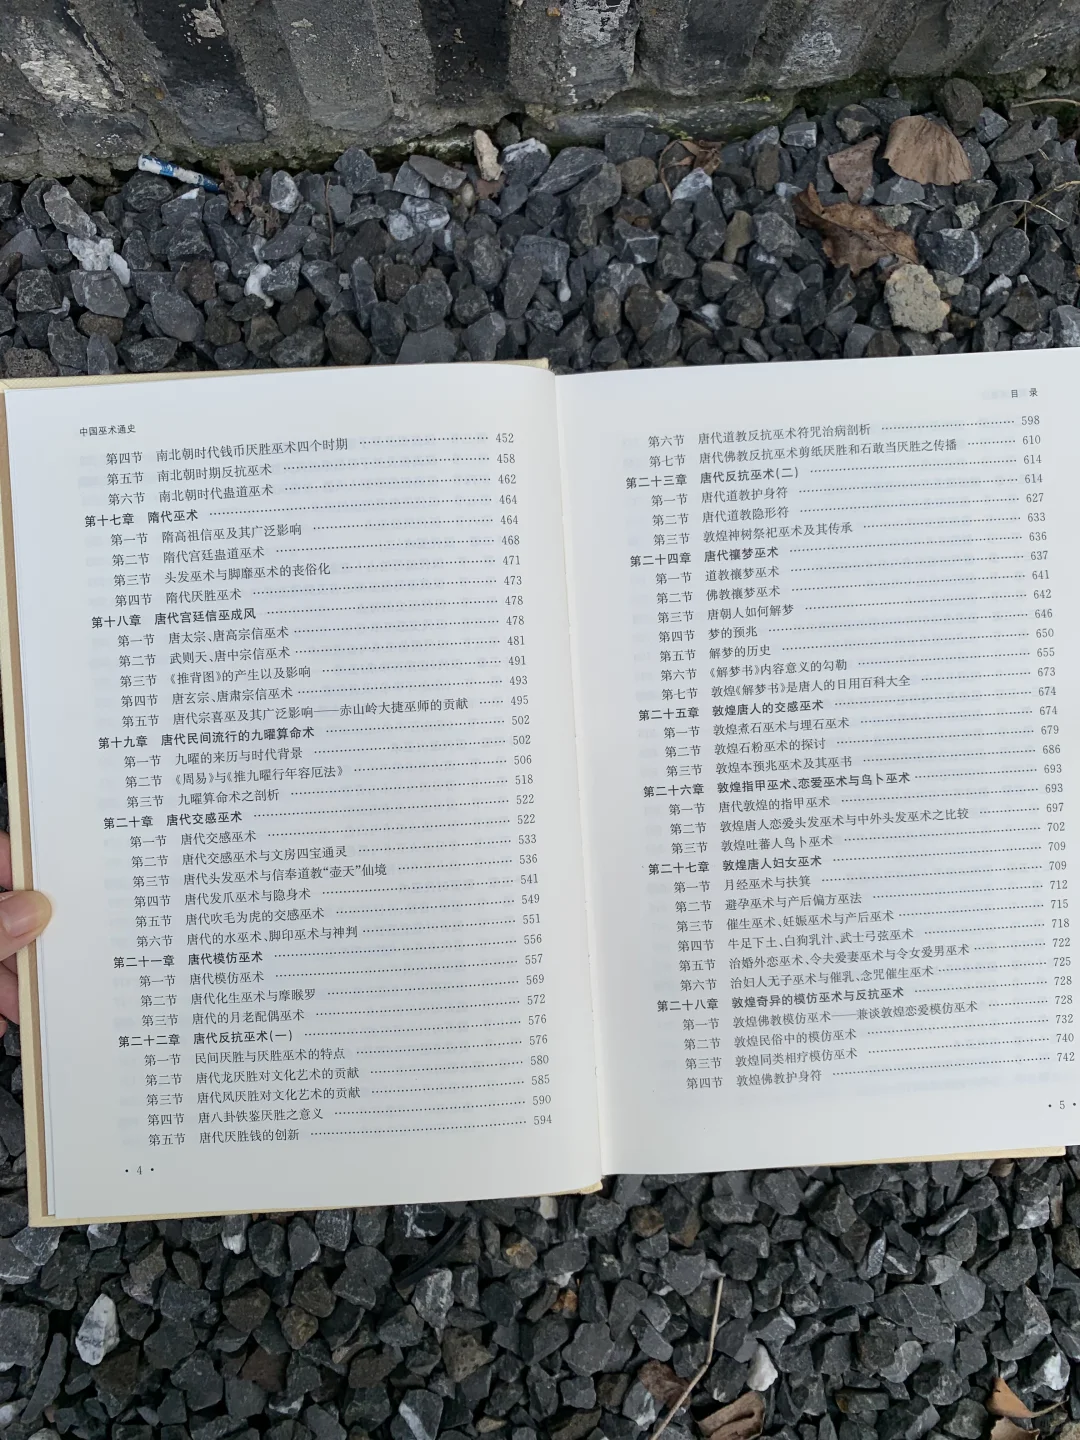 中国巫术通史
第四节 南北朝时代钱币厌胜巫术四个时期 452
第五节 南北朝时期反抗巫术 458
第六节 南北朝时代蛊道巫术 462
第十七章 隋代巫术 464
第一节 隋高祖信巫及其广泛影响 464
第二节 隋代宫廷蛊道巫术 468
第三节 头发巫术与脚靡巫术的丧俗化 471
第四节 隋代厌胜巫术 473
第十八章 唐代宫廷信巫成风 478
第一节 唐太宗、唐高宗信巫术 478
第二节 武则天、唐中宗信巫术 481
第三节 《推背图》的产生以及影响 491
第四节 唐玄宗、唐肃宗信巫术 493
第五节 唐代宗喜巫及其广泛影响——赤山岭大捷巫师的贡献 495
第十九章 唐代民间流行的九曜算命术 502
第一节 九曜的来历与时代背景 502
第二节 《周易》与《推九曜行年容厄法》 506
第三节 九曜算命术之剖析 518
第二十章 唐代交感巫术 522
第一节 唐代交感巫术 522
第二节 唐代交感巫术与文房四宝通灵 533
第三节 唐代头发巫术与信奉道教“壶天”仙境 536
第四节 唐代发爪巫术与隐身术 541
第五节 唐代吹毛为虎的交感巫术 549
第六节 唐代的水巫术、脚印巫术与神判 551
第二十一章 唐代模仿巫术 556
第一节 唐代模仿巫术 557
第二节 唐代化生巫术与摩睺罗 569
第三节 唐代的月老配偶巫术 572
第二十二章 唐代反抗巫术(一) 576
第一节 民间厌胜与厌胜巫术的特点 576
第二节 唐代龙厌胜对文化艺术的贡献 580
第三节 唐代凤厌胜对文化艺术的贡献 585
第四节 唐八卦铁鉴厌胜之意义 590
第五节 唐代厌胜钱的创新 594
· 4 ·
目 录
第六节 唐代道教反抗巫术符咒治病剖析 598
第七节 唐代佛教反抗巫术剪纸厌胜和石敢当厌胜之传播 610
第二十三章 唐代反抗巫术(二) 614
第一节 唐代道教护身符 614
第二节 唐代道教隐形符 627
第三节 敦煌神树祭祀巫术及其传承 633
第二十四章 唐代禳梦巫术 636
第一节 道教禳梦巫术 637
第二节 佛教禳梦巫术 641
第三节 唐朝人如何解梦 642
第四节 梦的预兆 646
第五节 解梦的历史 650
第六节 《解梦书》内容意义的勾勒 655
第七节 敦煌《解梦书》是唐人的日用百科大全 673
第二十五章 敦煌唐人的交感巫术 674
第一节 敦煌煮石巫术与埋石巫术 674
第二节 敦煌石粉巫术的探讨 679
第三节 敦煌本预兆巫术及其巫书 686
第二十六章 敦煌指甲巫术、恋爱巫术与鸟卜巫术 693
第一节 唐代敦煌的指甲巫术 693
第二节 敦煌唐人恋爱头发巫术与中外头发巫术之比较 697
第三节 敦煌吐蕃人鸟卜巫术 702
第二十七章 敦煌唐人妇女巫术 709
第一节 月经巫术与扶箕 709
第二节 避孕巫术与产后偏方巫法 712
第三节 催生巫术、妊娠巫术与产后巫术 715
第四节 牛足下土、白狗乳汁、武士弓弦巫术 718
第五节 治婚外恋巫术、令夫爱妻巫术与令女爱男巫术 722
第六节 治妇人无子巫术与催乳、念咒催生巫术 725
第二十八章 敦煌奇异的模仿巫术与反抗巫术 728
第一节 敦煌佛教模仿巫术——兼谈敦煌恋爱模仿巫术 728
第二节 敦煌民俗中的模仿巫术 732
第三节 敦煌同类相疗模仿巫术 740
第四节 敦煌佛教护身符 742
· 5 ·